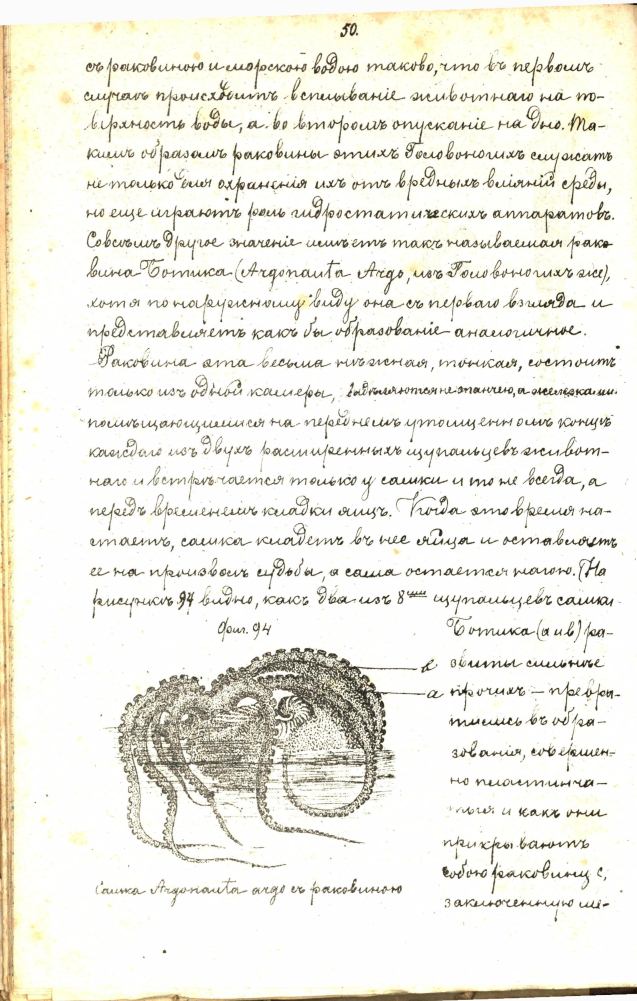 50.
съ раковиною и морскою водою таково, что въ первомъ
случаѣ происходитъ всплываніе животнаго на по-
верхность воды, а во второмъ опусканіе на дно. Та-
кимъ образомъ раковины этихъ Головоногихъ служатъ
не только для охраненія ихъ отъ вредныхъ вліяній среды,
но еще играютъ роль гидростатическихъ аппаратовъ.
Совсѣмъ другое значеніе имѣетъ такъ называемая рако-
вина Ботика (Argonauta Argo, изъ Головоногихъ же),
хотя по наружному виду она съ перваго взгляда и
представляетъ какъ бы образованіе аналогичное.
Раковина эта весьма нѣжная, тонкая, состоитъ
только изъ одной камеры, выдѣляются не эпанчею, а железками
помѣщающимися на переднемъ утолщенномъ концѣ
каждаго изъ двухъ расширенныхъ щупальцевъ живот-
наго и встрѣчается только у самки и то не всегда, а
передъ временемъ кладки яицъ. Когда это время на-
стаетъ, самка кладетъ въ нее яйца и оставляетъ
ее на произволъ судьбы, а сама остается нагою. (На
рисункѣ 94 видно, какъ два изъ 8ми щупальцевъ самки
Фиг. 94
Ботика (а и в) ра-
звиты сильнѣе
прочихъ – превра-
тились въ обра-
зованія, совершен-
но пластинча-
тыя и какъ они
прикрываютъ
собою раковину с,
заключенную ме-
в
а
Самка Argonauta argo съ раковиною